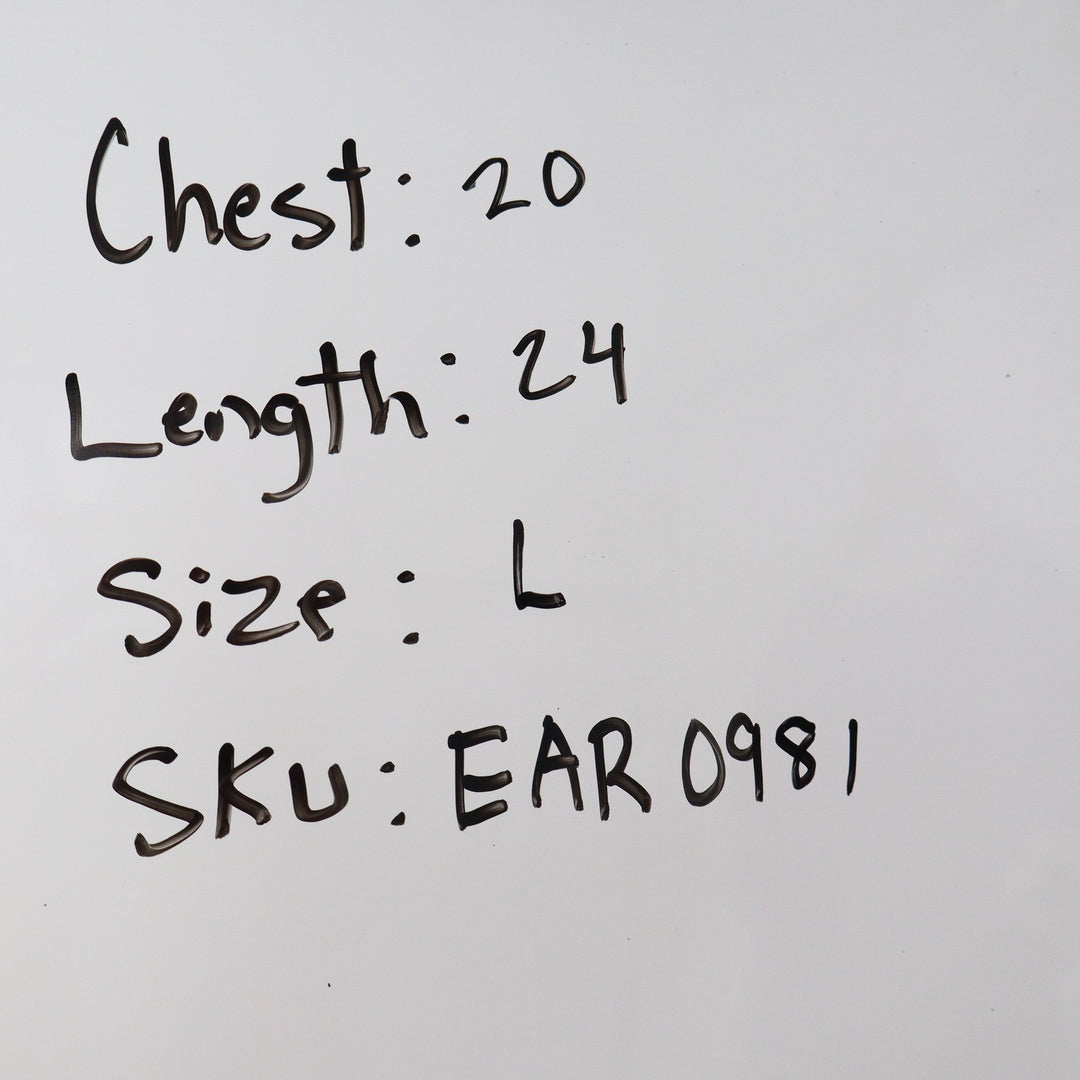 Chest: 20
Length: 24
Size: L
SKU: EAR 0981